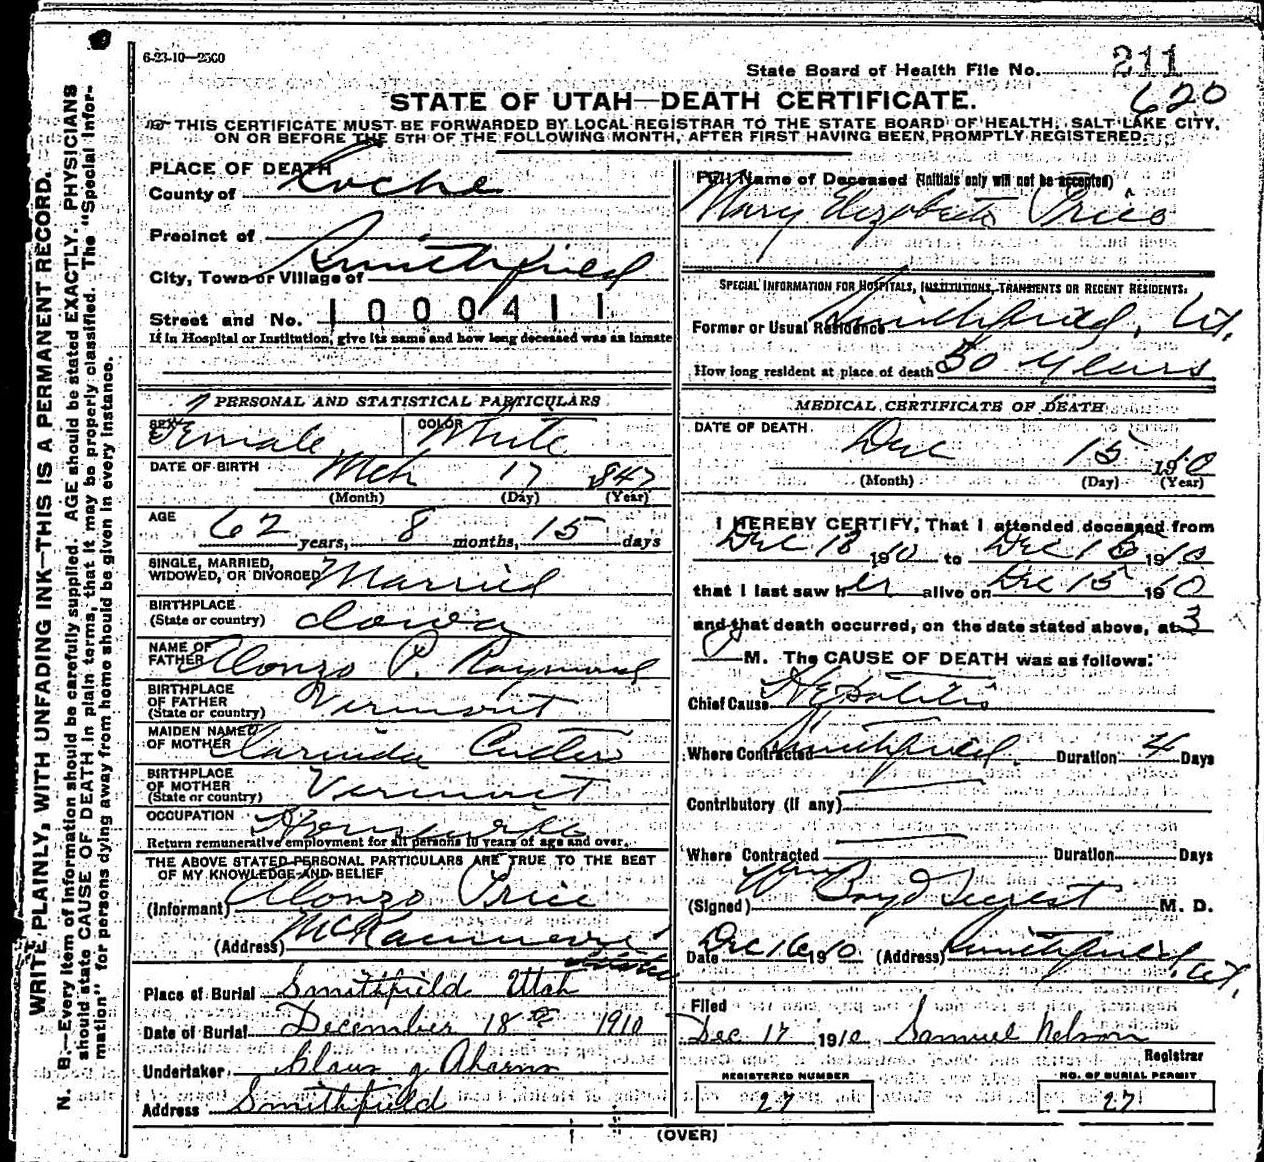 6-23-10—2500
State Board of Health File No. 211
620
STATE OF UTAH—DEATH CERTIFICATE.
THIS CERTIFICATE MUST BE FORWARDED BY LOCAL REGISTRAR TO THE STATE BOARD OF HEALTH, SALT LAKE CITY,
ON OR BEFORE THE 5TH OF THE FOLLOWING MONTH, AFTER FIRST HAVING BEEN PROMPTLY REGISTERED.
WRITE PLAINLY, WITH UNFADING INK—THIS IS A PERMANENT RECORD.
N. B.—Every item of information should be carefully supplied. AGE should be stated EXACTLY. PHYSICIANS
should state CAUSE OF DEATH in plain terms, that it may be properly classified. The "Special Infor-
mation" for persons dying away from home should be given in every instance.
PLACE OF DEATH
County of Cache
Precinct of
City, Town or Village of Smithfield
Street and No. 1000411
If in Hospital or Institution, give its name and how long deceased was an inmate
PERSONAL AND STATISTICAL PARTICULARS
SEX Female COLOR White
DATE OF BIRTH Mch 17 1847
(Month) (Day) (Year)
AGE
62 years, 8 months, 15 days
SINGLE, MARRIED,
WIDOWED, OR DIVORCED Married
BIRTHPLACE
(State or country) Iowa
NAME OF
FATHER Alonzo P. Raymond
BIRTHPLACE
OF FATHER
(State or country) Vermont
MAIDEN NAME
OF MOTHER Clarinda Cutler
BIRTHPLACE
OF MOTHER
(State or country) Vermont
OCCUPATION Housewife
Return remunerative employment for all persons 10 years of age and over.
THE ABOVE STATED PERSONAL PARTICULARS ARE TRUE TO THE BEST
OF MY KNOWLEDGE AND BELIEF
(Informant) Alonzo Price
(Address)
Place of Burial Smithfield Utah
Date of Burial December 18th 1910
Undertaker Claus J Ahrens
Address Smithfield
Full Name of Deceased (Initials only will not be accepted)
Mary Elizabeth Price
SPECIAL INFORMATION FOR HOSPITALS, INSTITUTIONS, TRANSIENTS OR RECENT RESIDENTS:
Former or Usual Residence Smithfield, Ut.
How long resident at place of death 50 Years
MEDICAL CERTIFICATE OF DEATH
DATE OF DEATH
Dec 15 1910
(Month) (Day) (Year)
I HEREBY CERTIFY, That I attended deceased from
Dec 1910 to Dec 15 1910
that I last saw her alive on Dec 15 1910
and that death occurred, on the date stated above, at 3
M. The CAUSE OF DEATH was as follows:
Chief Cause Hepatitis
Where Contracted Smithfield. Duration 4 Days
Contributory (if any)
Where Contracted Duration Days
(Signed) Boyd Seegist M. D.
Date Dec 16 1910 (Address) Smithfield, Ut.
Filed
Dec 17 1910 Samuel Nelson
Registrar
REGISTERED NUMBER
27
NO. OF BURIAL PERMIT
27
(OVER)